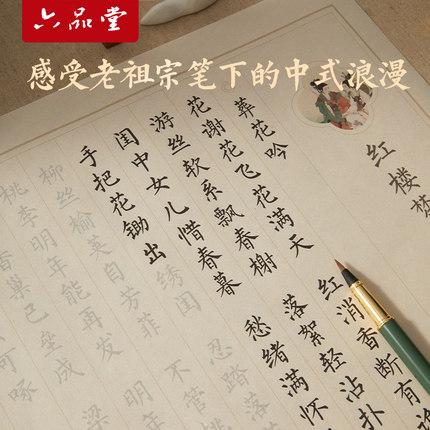 六品堂
感受老祖宗笔下的中式浪漫
红楼梦
葬花吟
花谢花飞花满天
红消香断有
游丝软系飘春榭
落絮轻沾扑
闺中女儿惜春暮
愁绪满怀
手把花锄出绣闺
忍踏落
柳丝榆荚自芳菲
不管
桃李明年能再发
明年
香巢已垒成
梁
可啄